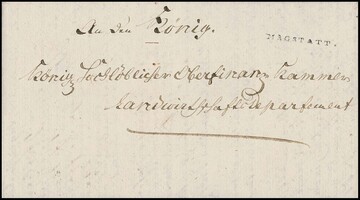 An den König.
MAGSTATT.
König. Hochlöblicher Oberfinanz Kammer,
Landwirthschafts Departement